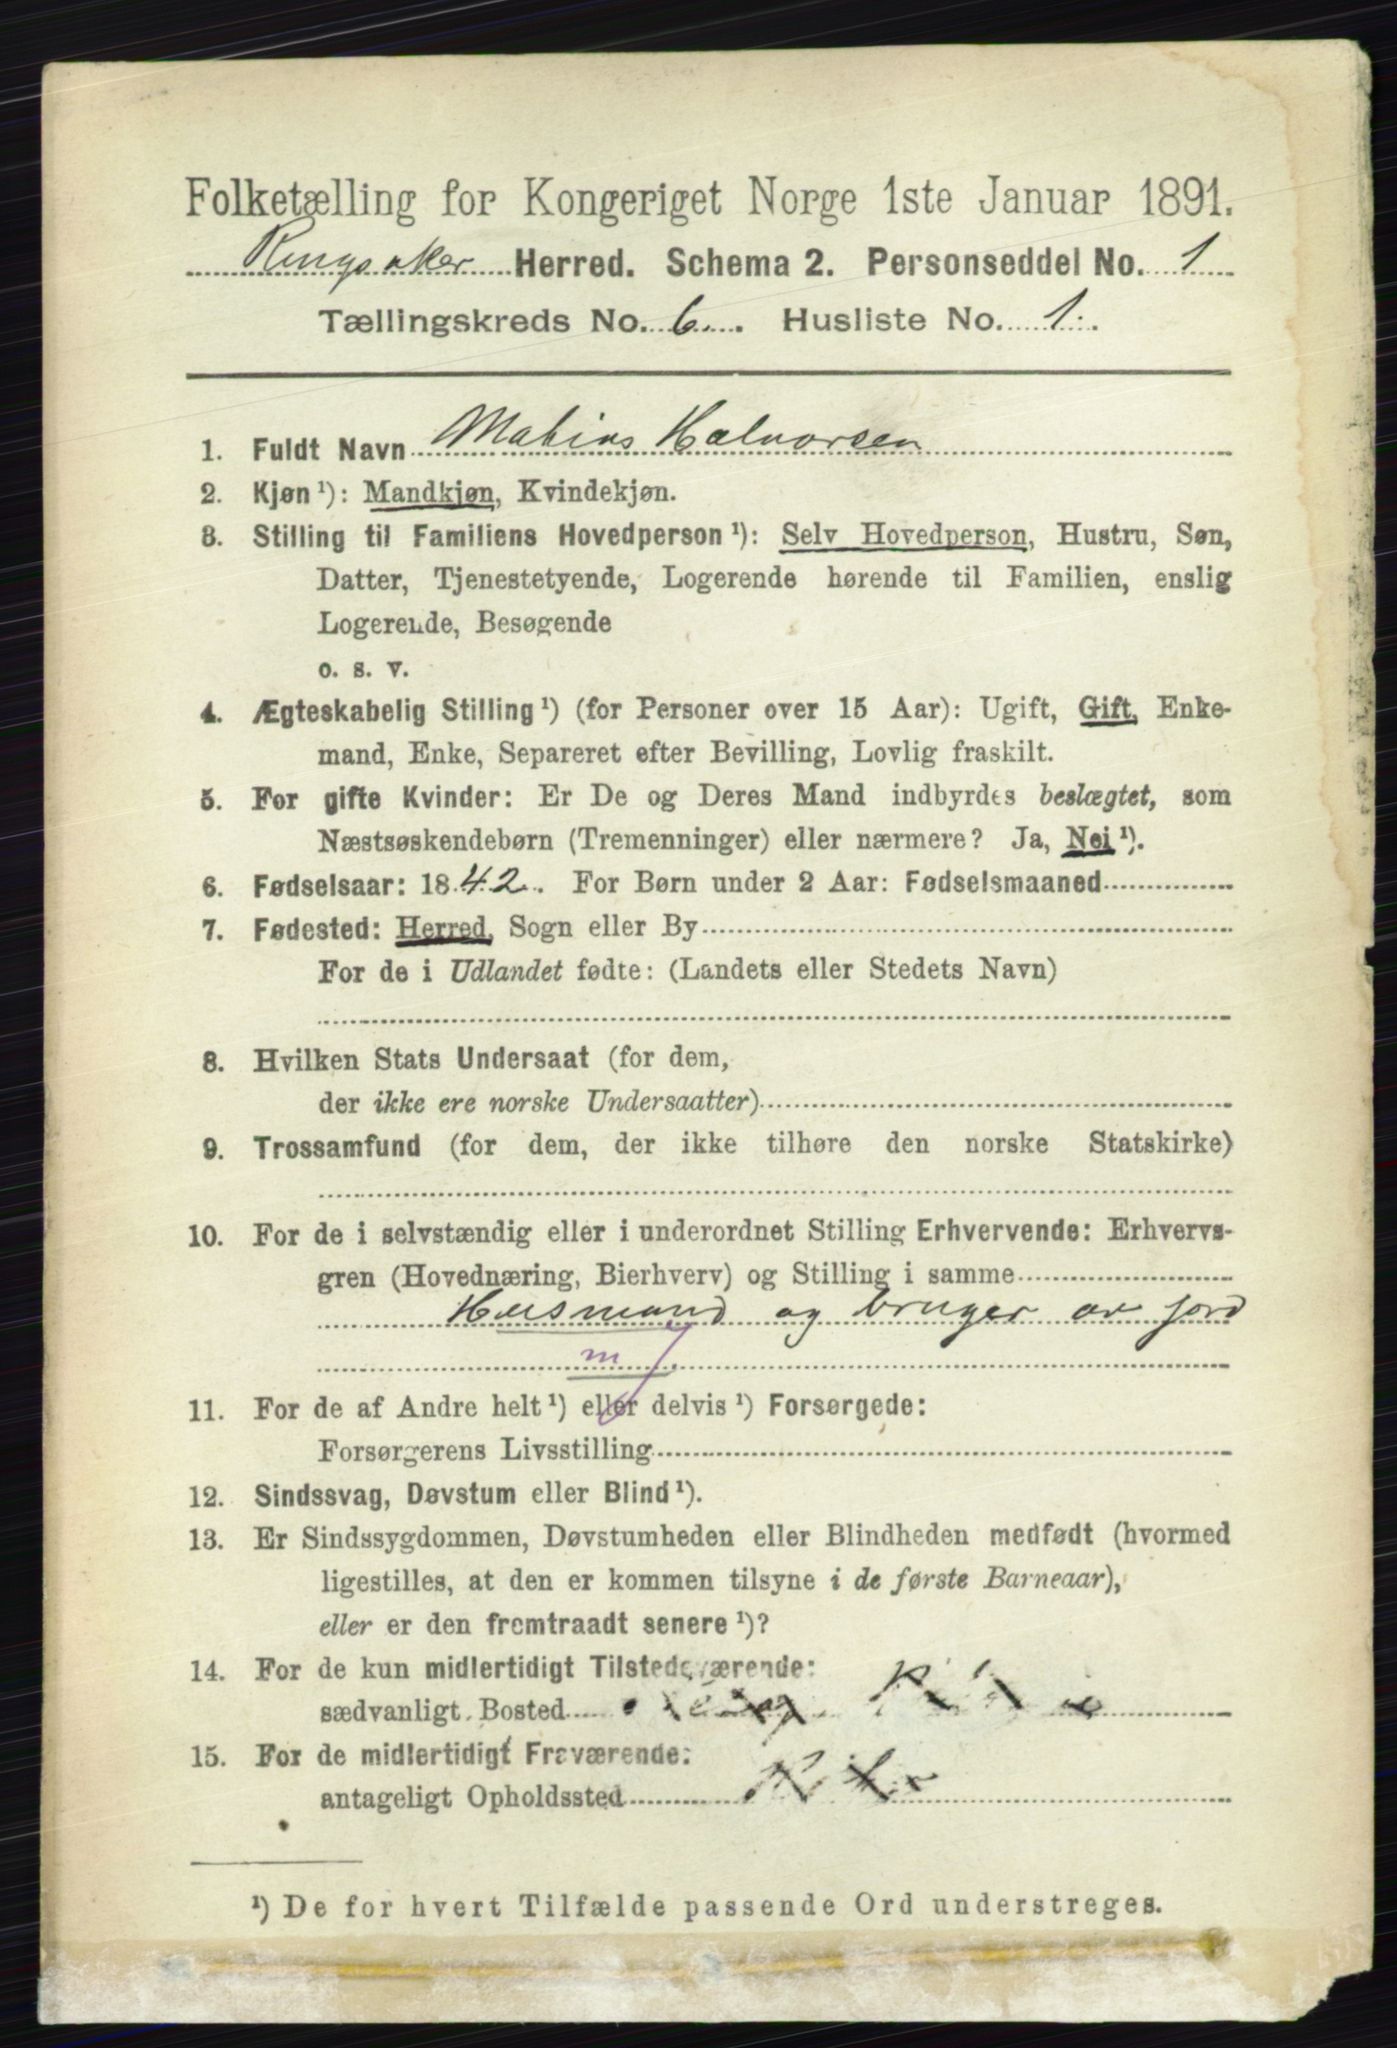 Folketælling for Kongeriget Norge 1ste Januar 1891.
Ringsaker Herred. Schema 2. Personseddel No. 1
Tællingskreds No. 6. Husliste No. 1.
1. Fuldt Navn Mathias Halvorsen
2. Kjøn ¹): Mandkjøn, Kvindekjøn.
3. Stilling til Familiens Hovedperson ¹): Selv Hovedperson, Hustru, Søn,
Datter, Tjenestetyende, Logerende hørende til Familien, enslig
Logerende, Besøgende
o. s. v.
4. Ægteskabelig Stilling ¹) (for Personer over 15 Aar): Ugift, Gift, Enke-
mand, Enke, Separeret efter Bevilling, Lovlig fraskilt.
5. For gifte Kvinder: Er De og Deres Mand indbyrdes beslægtet, som
Næstsøskendebørn (Tremenninger) eller nærmere? Ja, Nei ¹).
6. Fødselsaar: 1842. For Børn under 2 Aar: Fødselsmaaned
7. Fødested: Herred, Sogn eller By
For de i Udlandet fødte: (Landets eller Stedets Navn)
8. Hvilken Stats Undersaat (for dem,
der ikke ere norske Undersaatter)
9. Trossamfund (for dem, der ikke tilhøre den norske Statskirke)
10. For de i selvstændig eller i underordnet Stilling Erhvervende: Erhvervs-
gren (Hovednæring, Bierhverv) og Stilling i samme
Husmand og bruger av jord
m
11. For de af Andre helt ¹) eller delvis ¹) Forsørgede:
Forsørgerens Livsstilling
12. Sindssvag, Døvstum eller Blind ¹).
13. Er Sindssygdommen, Døvstumheden eller Blindheden medfødt (hvormed
ligestilles, at den er kommen tilsyne i de første Barneaar),
eller er den fremtraadt senere ¹)?
14. For de kun midlertidigt Tilstedeværende:
sædvanligt Bosted
15. For de midlertidigt Fraværende:
antageligt Opholdssted
¹) De for hvert Tilfælde passende Ord understreges.